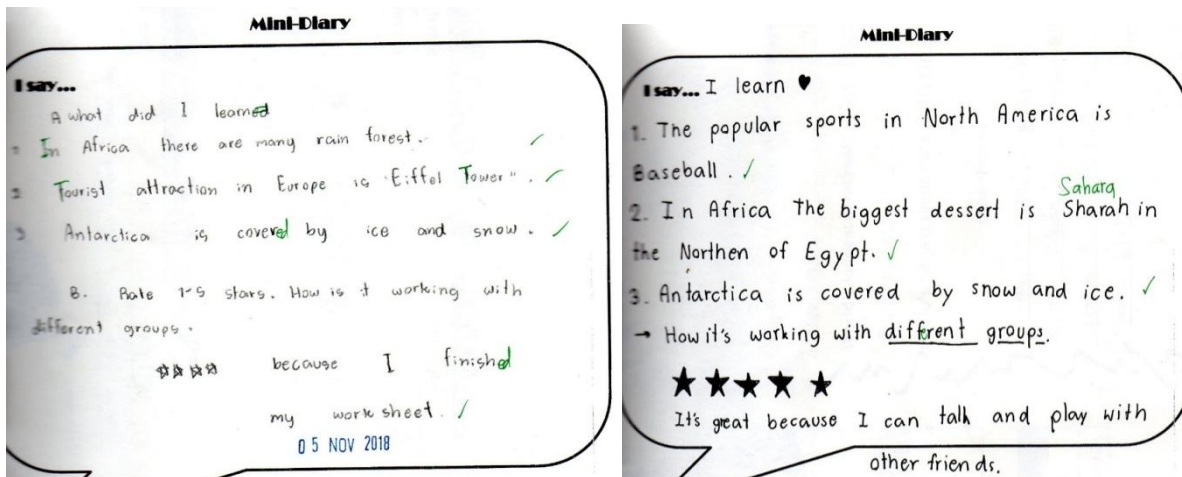 Mini-Diary
I say...
A what did I learned
1 In Africa there are many rain forest.
2 Tourist attraction in Europe is "Eiffel Tower".
3 Antarctica is covered by ice and snow.
B. Rate 1-5 stars. How is it working with
different groups.
because I finished
my work sheet.
05 NOV 2018
Mini-Diary
I say... I learn ♥
1. The popular sports in North America is
Baseball.
Sahara
2. In Africa The biggest dessert is Sharah in
the Northen of Egypt.
3. Antarctica is covered by snow and ice.
→ How it's working with different groups.
★★★★★
It's great because I can talk and play with
other friends.